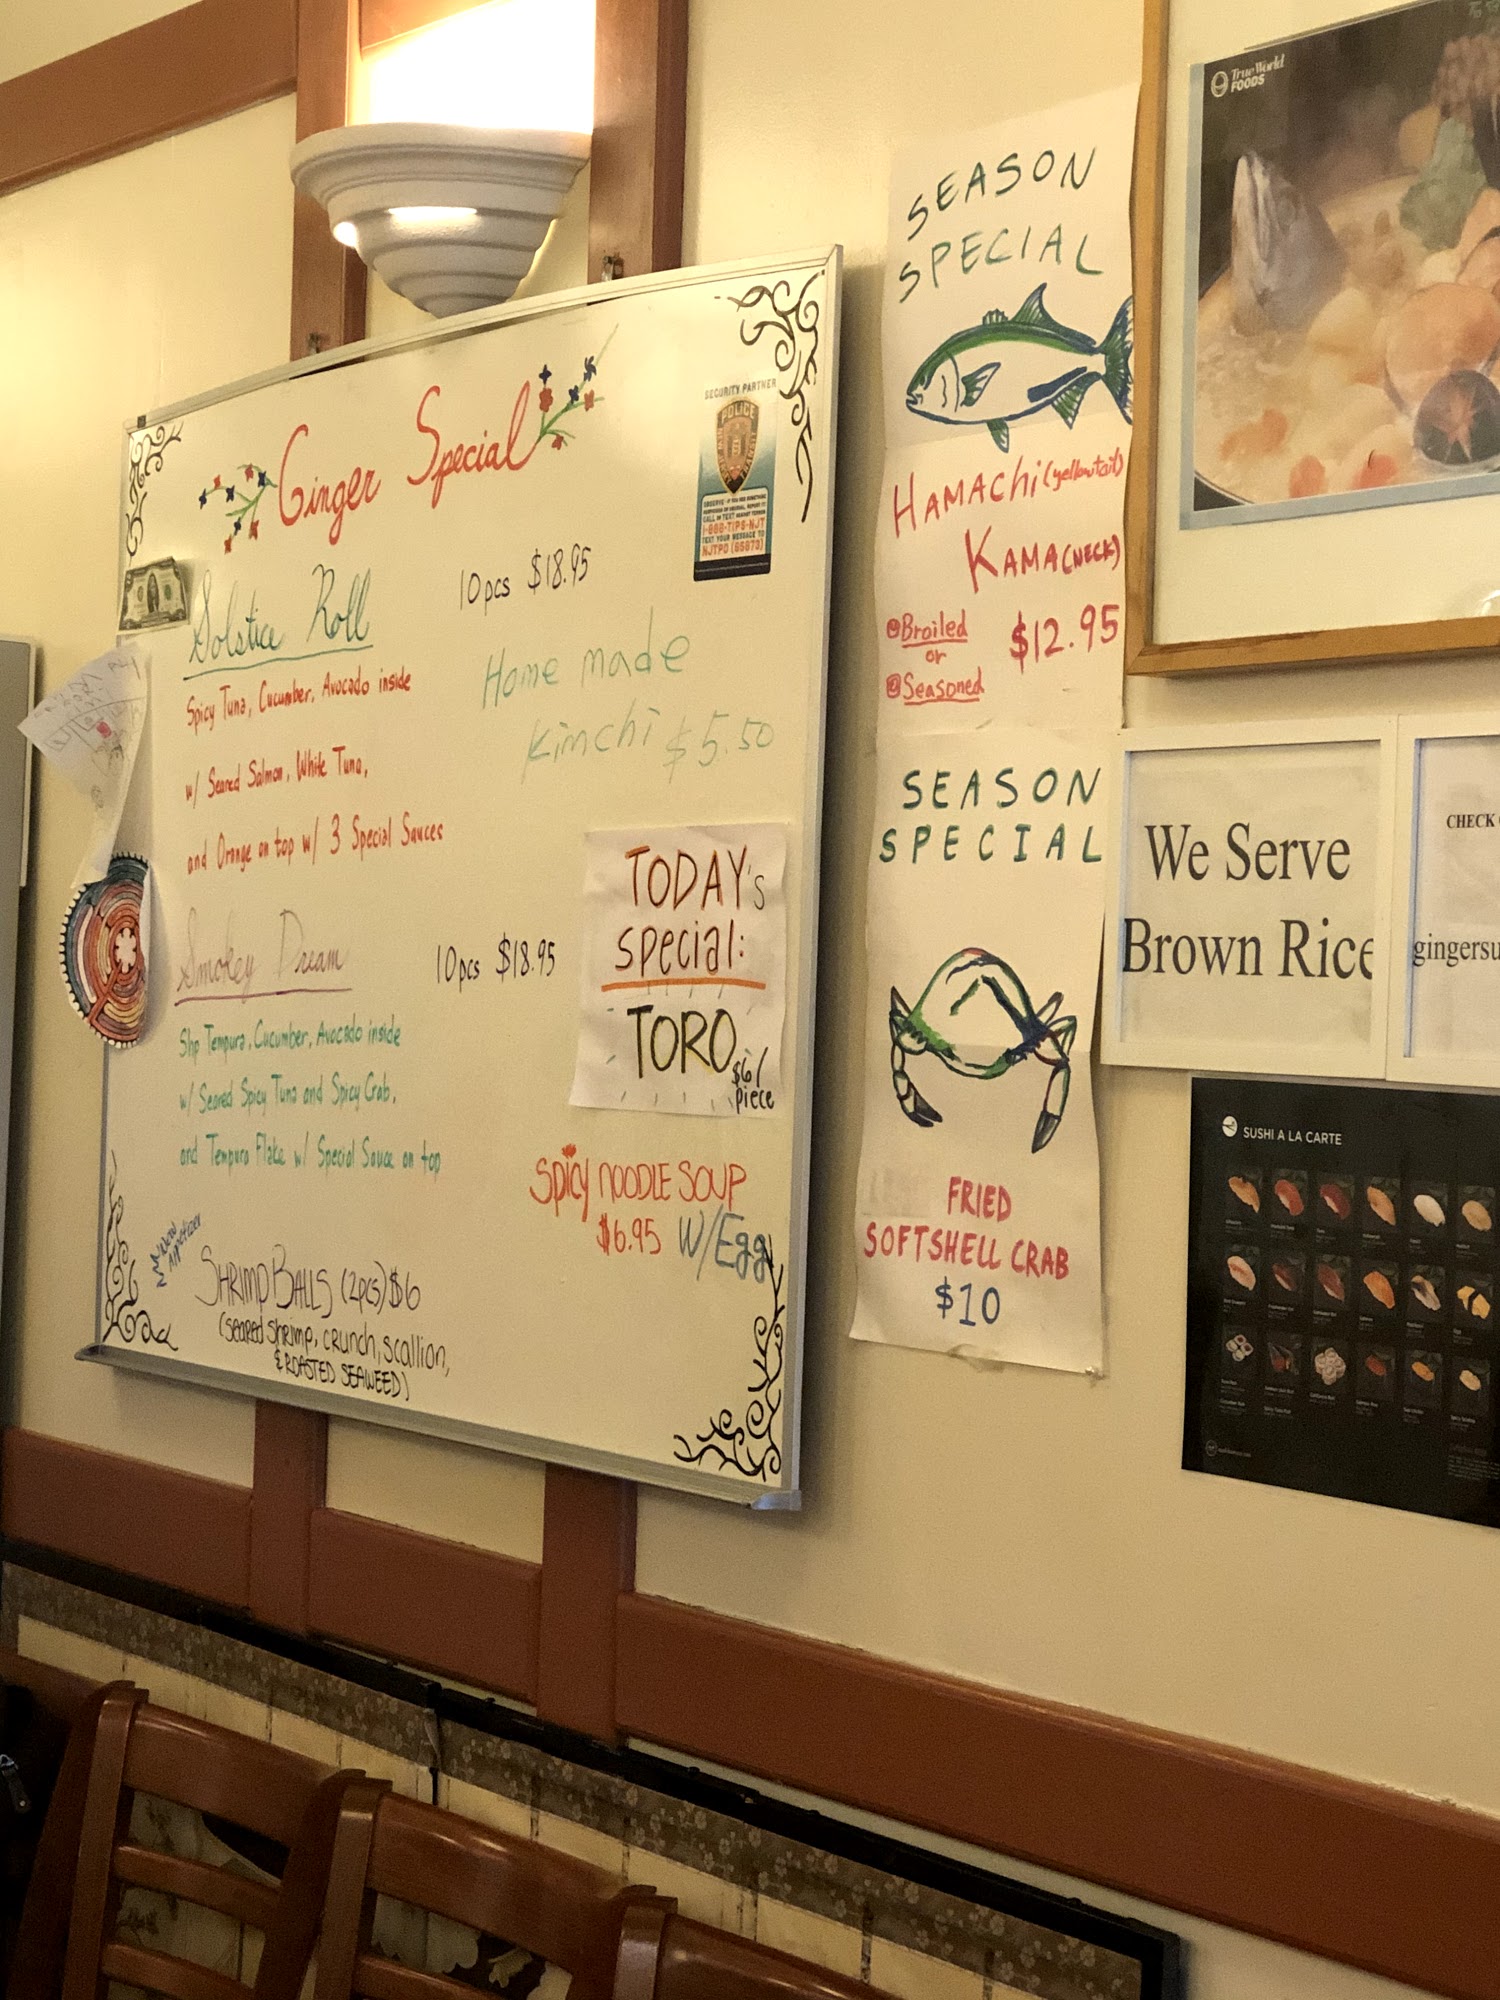 Ginger Special
SECURITY PARTNER
POLICE
1-888-TIPS-NJT
TEXT YOUR MESSAGE TO
NJTPD (65873)
Solstice Roll
10pcs $18.95
Spicy Tuna, Cucumber, Avocado inside
w/ Seared Salmon, White Tuna,
and Orange on top w/ 3 Special Sauces
Home made
Kimchi $5.50
Smokey Dream
10pcs $18.95
Shp Tempura, Cucumber, Avocado inside
w/ Seared Spicy Tuna and Spicy Crab,
and Tempura Flake w/ Special Sauce on top
TODAY's
special:
TORO
$6/
piece
Spicy NOODLE SOUP
$6.95 W/Egg
New
Appetizer
SHRIMP BALLS (2pcs) $6
(seared shrimp, crunch, scallion,
& ROASTED SEAWEED)
SEASON
SPECIAL
HAMACHi (yellowtail)
KAMA (NECK)
Broiled
or
Seasoned
$12.95
SEASON
SPECIAL
FRIED
SOFTSHELL CRAB
$10
True World
FOODS
We Serve
Brown Rice
CHECK
gingersu
SUSHI A LA CARTE